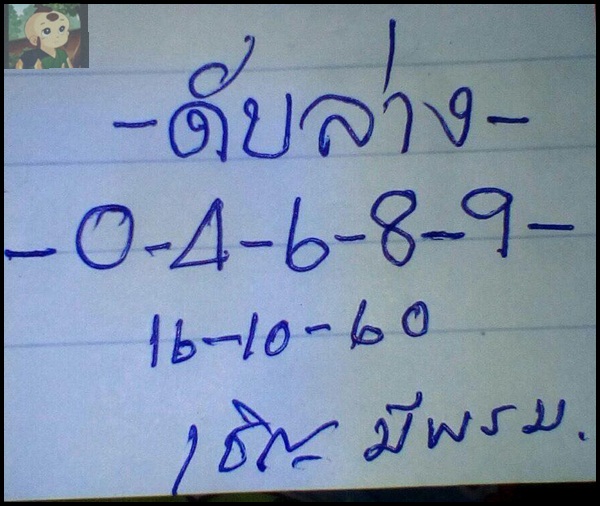 -ดับล่าง-
-0-4-6-8-9-
16-10-60
มีพรม.